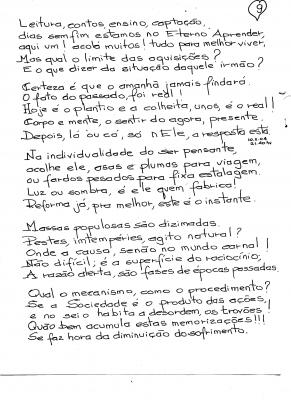 9
Leitura, contos, ensino, captação,
dias sem fim estamos no Eterno Aprender,
aqui um! acolá muitos! tudo para melhor viver,
Mas qual o limite das aquisições?
E o que dizer da situação daquele irmão?
Certeza é que o amanhã jamais findará.
O fato do passado, foi real!
Hoje é o plantio e a colheita, unos, é o real!
Corpo e mente, o sentir do agora, presente.
Depois, lá ou cá, só nEle, a resposta está.
Na individualidade do ser pensante,
acolhe ele, asas e plumas para viagem,
ou fardos pesados para fixa estalagem.
Luz ou sombra, é ele quem fabrica!
Reforma já, pra melhor, este é o instante.
Massas populosas são dizimadas.
Pestes, intempéries, agito natural?
Onde a causa, senão no mundo carnal!
Não difícil; é a superfície do raciocínio;
A razão alerta, são fases de épocas passadas.
Qual o mecanismo, como o procedimento?
Se a Sociedade é o produto das ações,
e no seio habita e debordem, os trovões!
Quão bem acumula estas memorizações!!!
Se faz hora da diminuição do sofrimento.